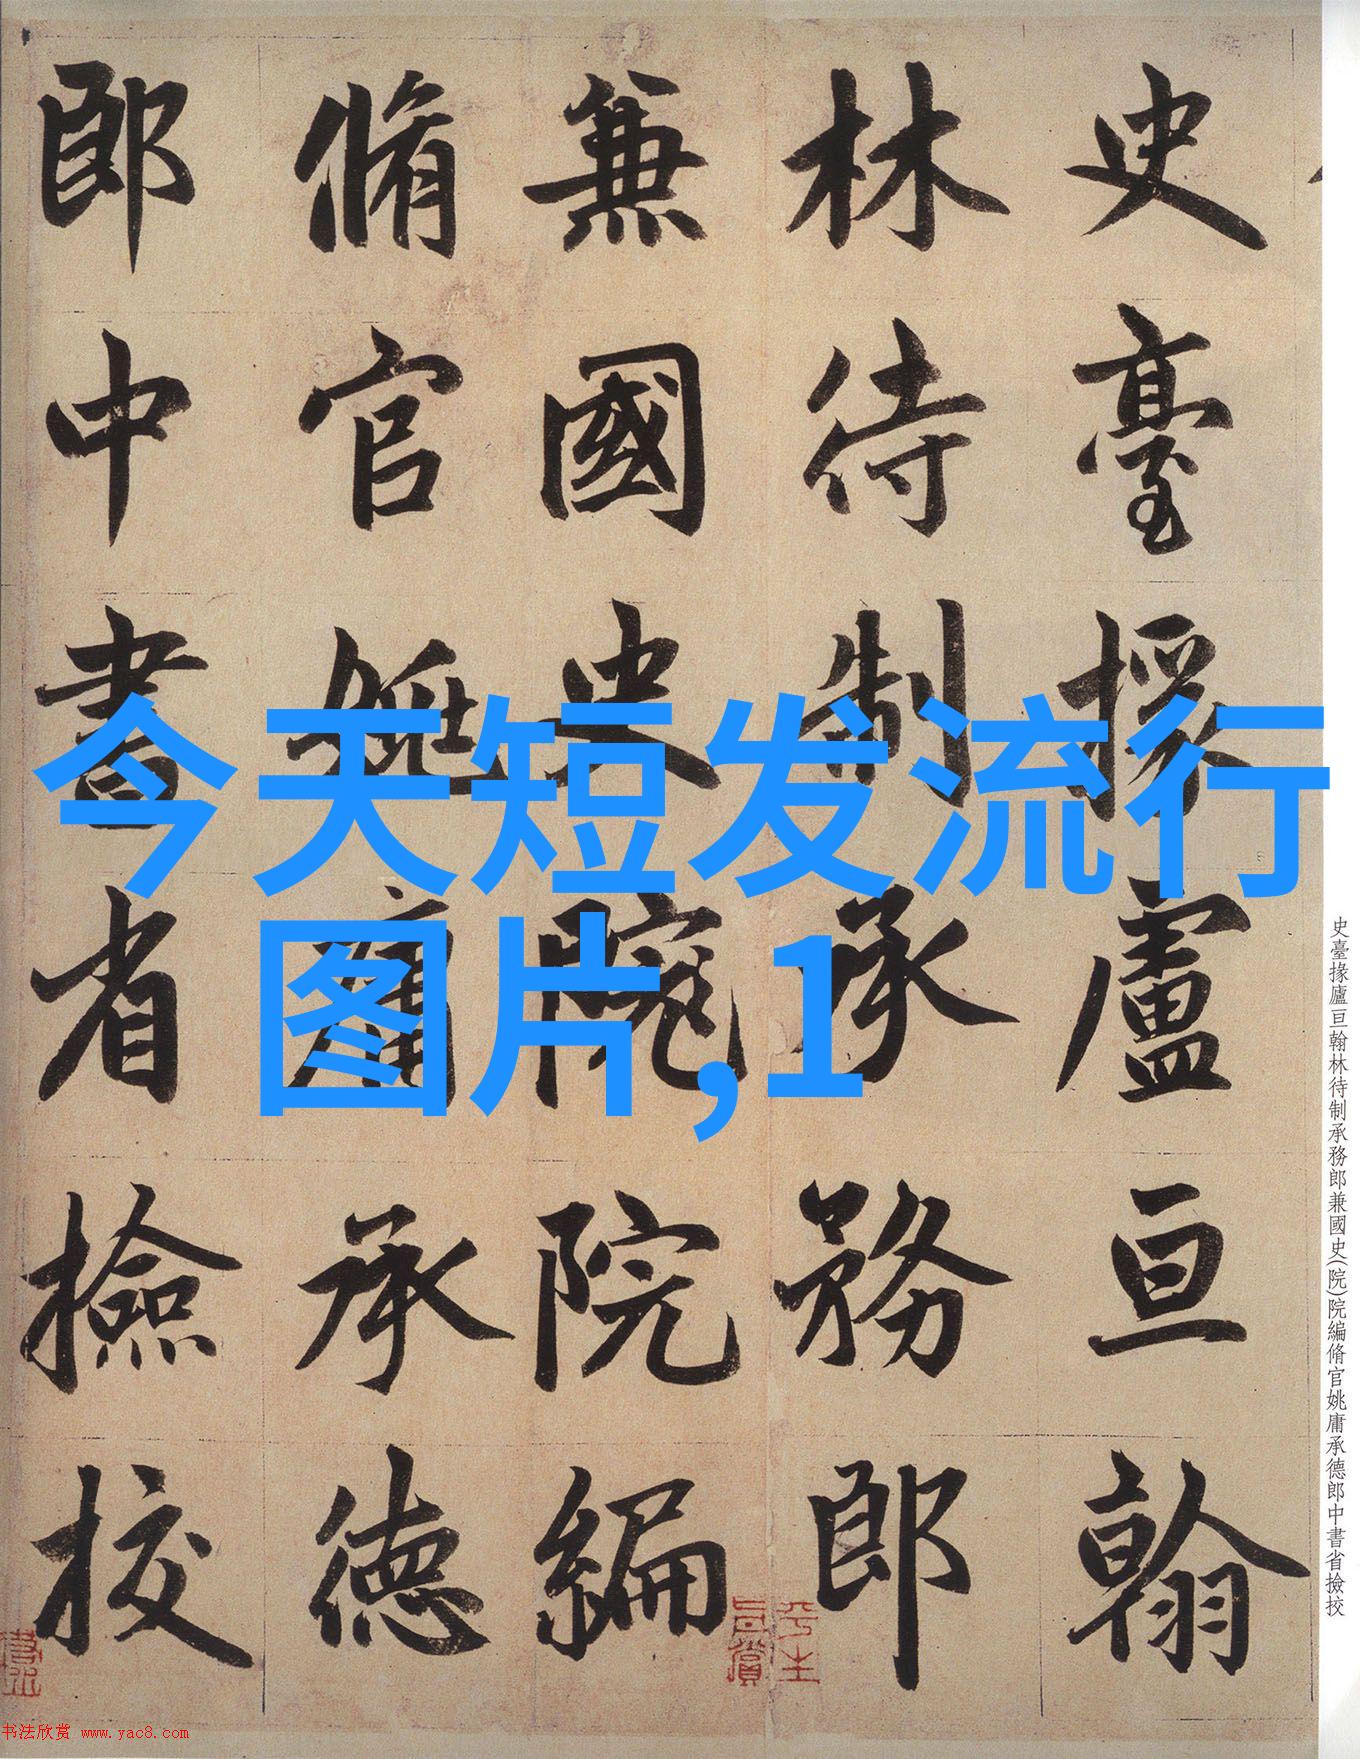 今天短发流行
图片,1
史臺掾盧亘翰
林待制承務郎
兼國史院院編
脩官姚庸承德
郎中書省撿挍
史臺掾廬亘翰林待制承務郎兼國史(院)院編脩官姚庸承德郎中書省撿挍
平生
真賞
书法欣赏 www.yac8.com